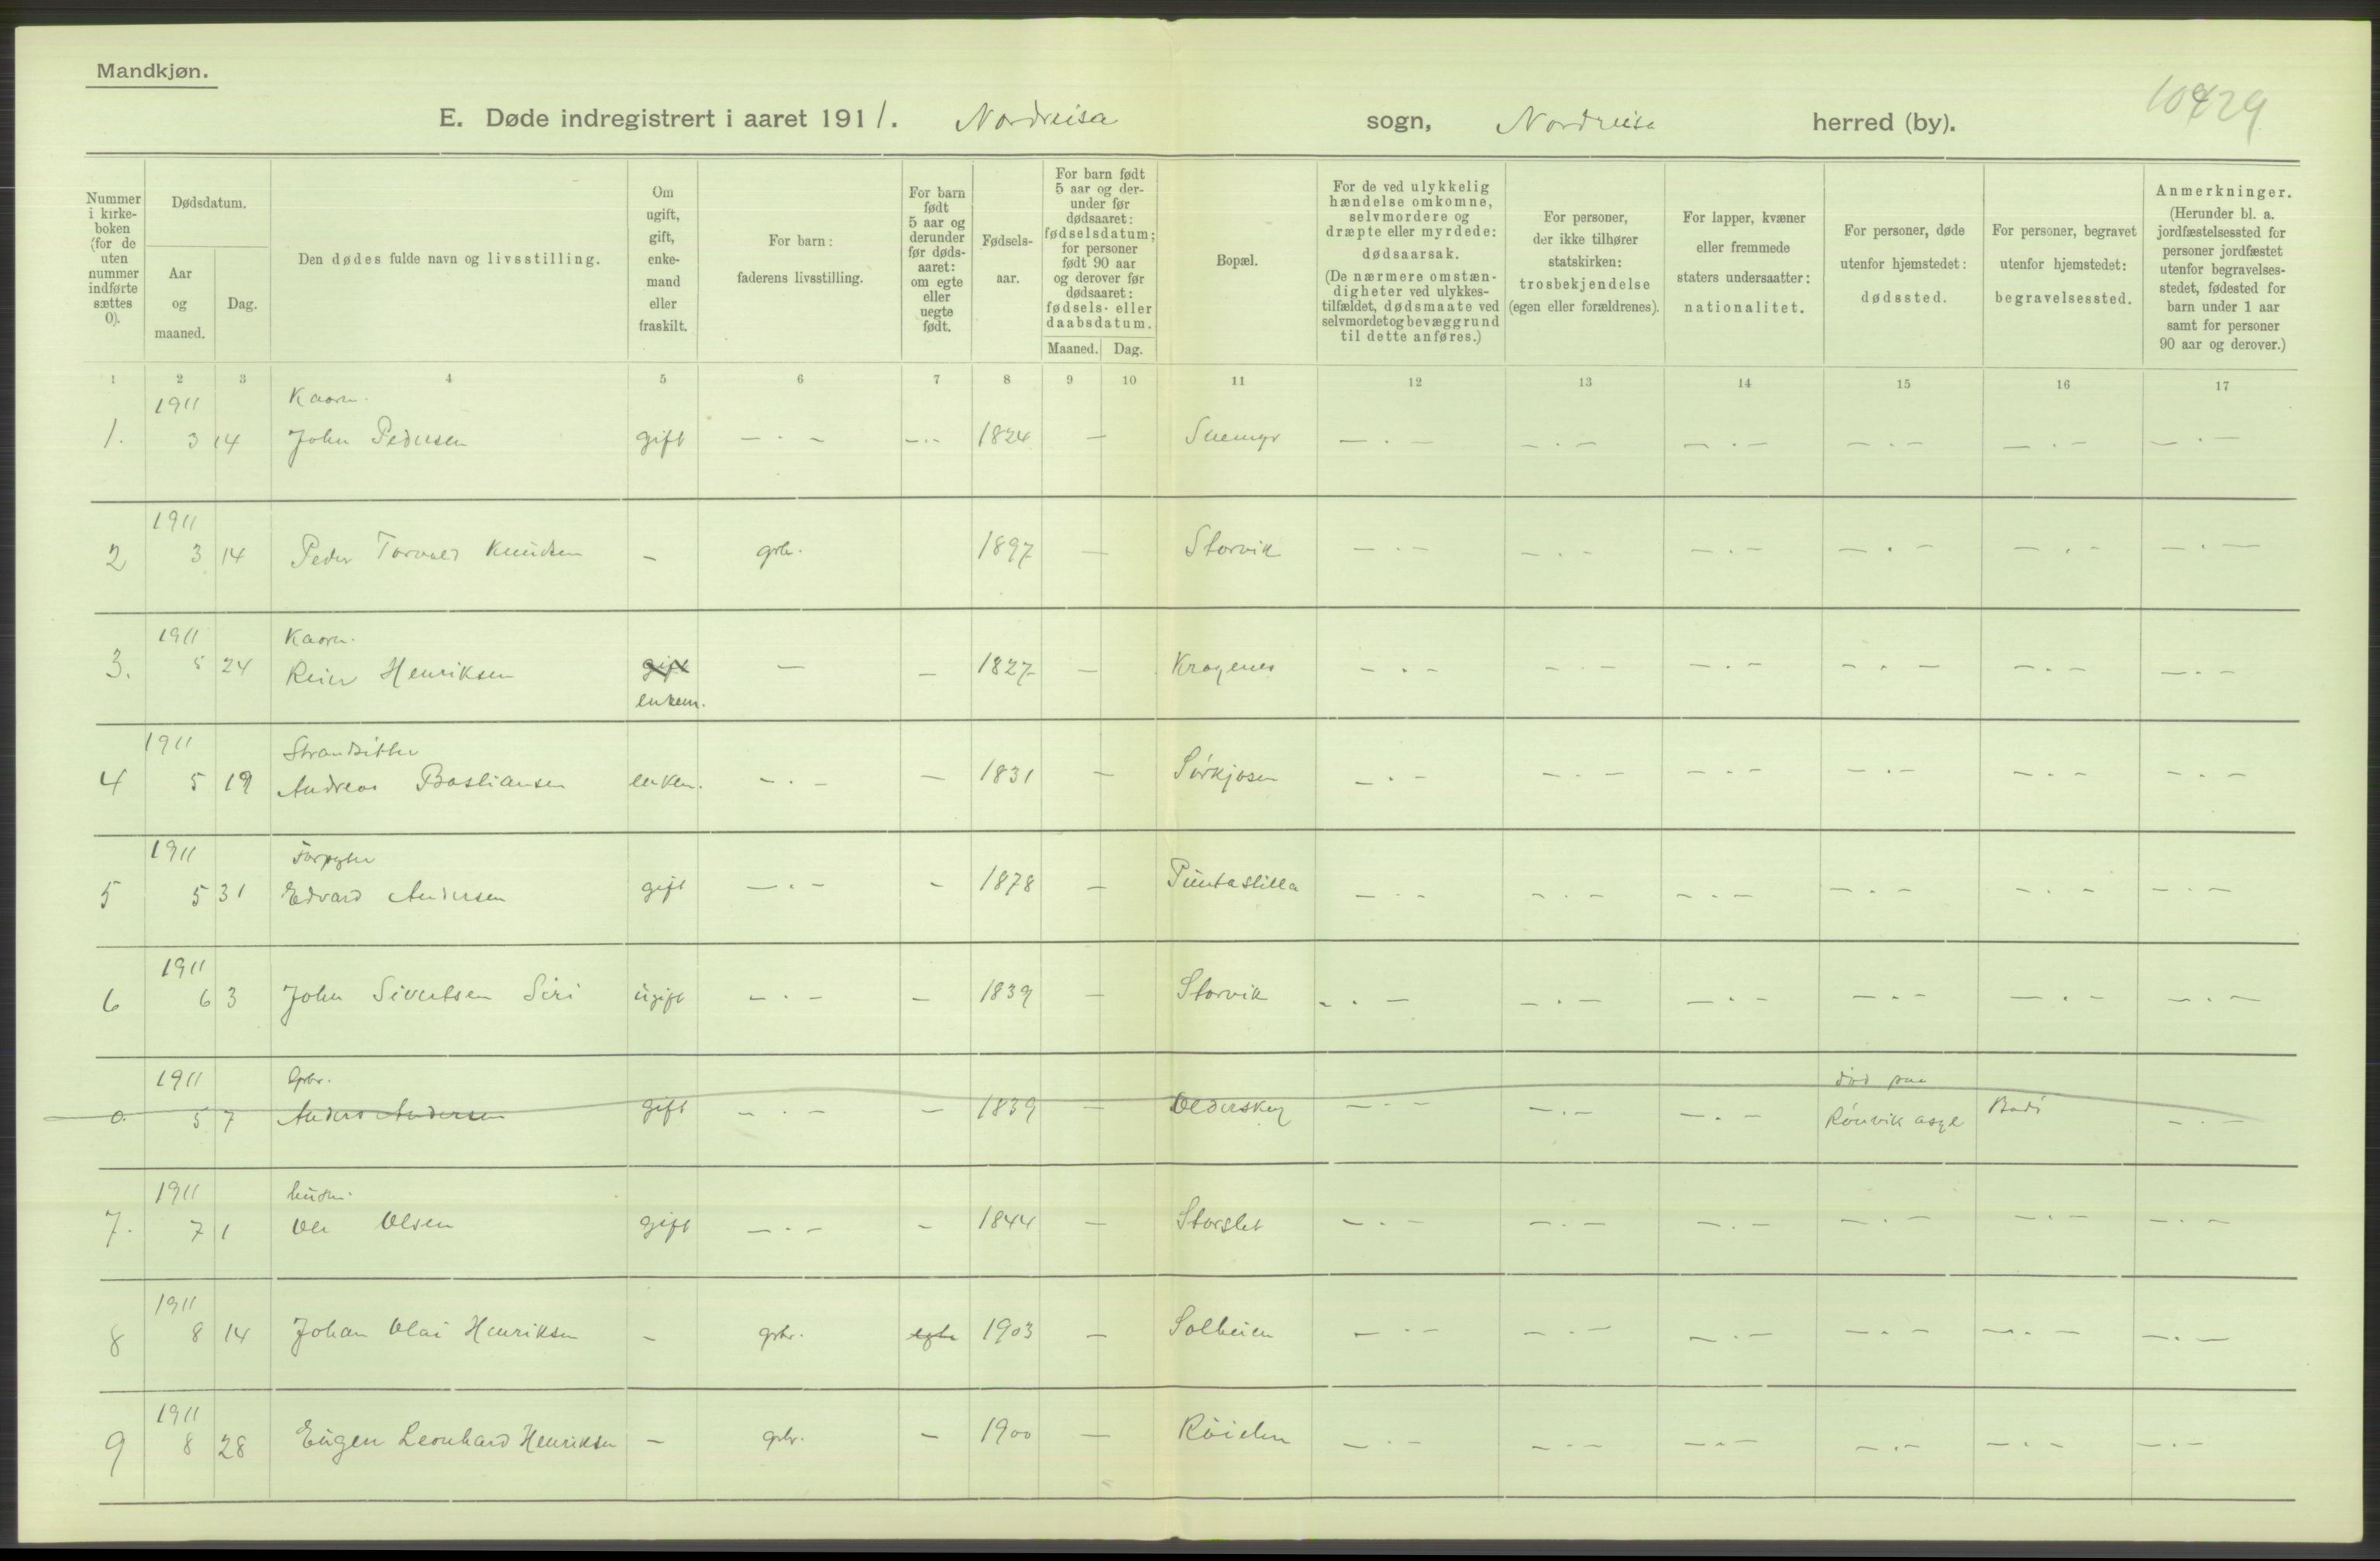 Mandkjøn.
E. Døde indregistrert i aaret 1911. Nordreisa sogn, Nordreisa herred (by).
Nummer i kirkeboken (for de uten nummer indførte sættes 0).
Dødsdatum.
Aar og maaned.
Dag.
Den dødes fulde navn og livsstilling.
Om ugift, gift, enkemand eller fraskilt.
For barn: faderens livsstilling.
For barn født 5 aar og derunder før dødsaaret: om egte eller uegte født.
Fødselsaar.
For barn født 5 aar og derunder før dødsaaret: fødselsdatum; for personer født 90 aar og derover før dødsaaret: fødsels- eller daabsdatum.
Maaned. Dag.
Bopæl.
For de ved ulykkelig hændelse omkomne, selvmordere og dræpte eller myrdede: dødsaarsak. (De nærmere omstændigheter ved ulykkestilfældet, dødsmaate ved selvmordet og bevæggrund til dette anføres.)
For personer, der ikke tilhører statskirken: trosbekjendelse (egen eller forældrenes).
For lapper, kvæner eller fremmede staters undersaatter: nationalitet.
For personer, døde utenfor hjemstedet: dødssted.
For personer, begravet utenfor hjemstedet: begravelsessted.
Anmerkninger. (Herunder bl. a. jordfæstelsessted for personer jordfæstet utenfor begravelsesstedet, fødested for barn under 1 aar samt for personer 90 aar og derover.)
1 2 3 4 5 6 7 8 9 10 11 12 13 14 15 16 17
1911 Kaarm.
1. 3 14 John Pedersen gift — . — — . — 1824 — — . — — . — — . — — . — — . — — . —
1911
2 3 14 Peder Torvald Knudsen — grb. 1897 — Storvik — . — — . — — . — — . — — . — — . —
1911 Kaarm.
3. 5 24 Reier Henriksen gift — — 1827 — Kragenes — . — — . — — . — — . — — . — — . —
enkem.
1911 Strandsitter
4 5 19 Andreas Bastiansen enkem. — . — — 1831 — Sørkjosen — . — — . — — . — — . — — . — — . —
1911 Forpagter
5 5 31 Edvard Andersen gift — . — — 1878 — Puntastilla — . — — . — — . — — . — — . — — . —
1911
6 6 3 John Sivertsen Siri ugift — . — — 1839 — Storvik — . — — . — — . — — . — — . — — . —
1911 Grbr. død paa
0. 5 7 Anders Andersen gift — . — — 1839 — Olderskog — . — — . — — . — Rønvik asyl Bodø — . —
1911 husm.
7. 7 1 Ole Olsen gift — . — — 1844 — Storslet — . — — . — — . — — . — — . — — . —
1911
8 8 14 Johan Olai Henriksen — grbr. egte 1903 — Solheien — . — — . — — . — — . — — . — — . —
1911
9 8 28 Eugen Leonhard Henriksen — grbr. — 1900 — Røielen — . — — . — — . — — . — — . — — . —